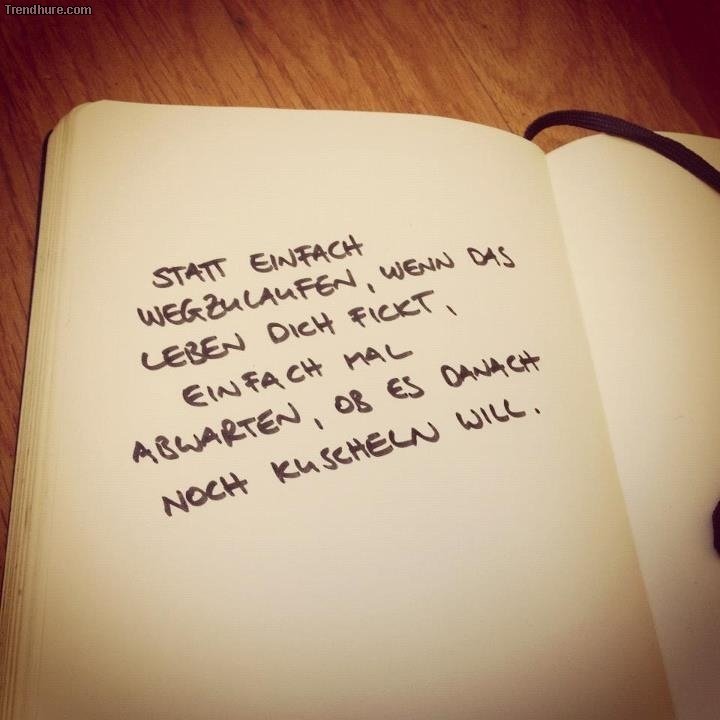 Trendhure.com
STATT EINFACH
WEGZULAUFEN, WENN DAS
LEBEN DICH FICKT,
EINFACH MAL
ABWARTEN, OB ES DANACH
NOCH KUSCHELN WILL.